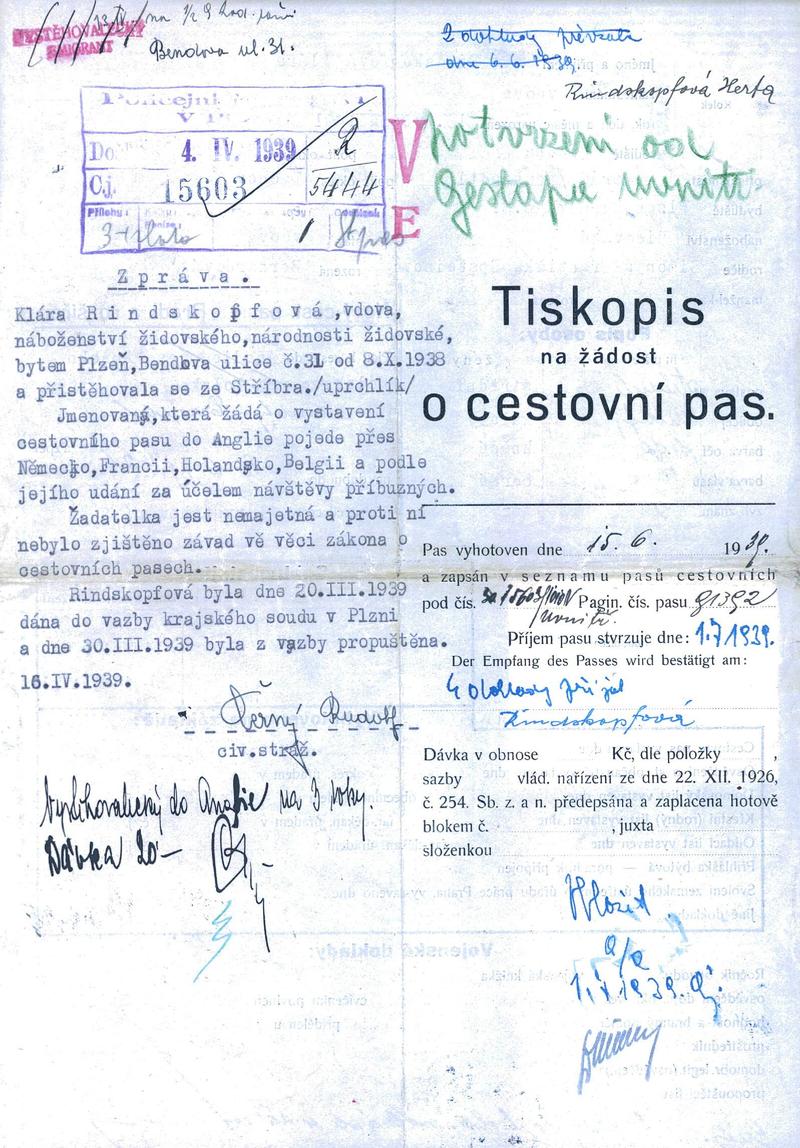 VYSTĚHOVALECKÝ
EMIGRANT
Bendova ul. 31.
2 doklady převzala
dne 6. 6. 1939.
Rindskopfová Herta
Policejní
Do
4. IV. 1939
2
Čj.
15603
5444
Přílohy:
3 + foto
1
V
E
potvrzení od
Gestapa uvnitř
Zpráva.
Klára Rindskopfová, vdova,
náboženství židovského, národnosti židovské,
bytem Plzeň, Bendova ulice č.31 od 8.X.1938
a přistěhovala se ze Stříbra./uprchlík/
Jmenovaná, která žádá o vystavení
cestovního pasu do Anglie pojede přes
Německo, Francii, Holandsko, Belgii a podle
jejího udání za účelem návštěvy příbuzných.
Žadatelka jest nemajetná a proti ní
nebylo zjištěno závad vě věci zákona o
cestovních pasech.
Rindskopfová byla dne 20.III.1939
dána do vazby krajského soudu v Plzni
a dne 30.III.1939 byla z vazby propuštěna.
16.IV.1939.
Černý Rudolf
civ.stráž.
Vystěhovalecký do Anglie na 3 roky.
Dávka 20-
Tiskopis
na žádost
o cestovní pas.
Pas vyhotoven dne 15. 6. 1939.
a zapsán v seznamu pasů cestovních
pod čís. 15603 Pagin. čís. pasu 91392
uvnitř.
Příjem pasu stvrzuje dne: 1.7 1939.
Der Empfang des Passes wird bestätigt am:
4 doklady přijal
Rindskopfová
Dávka v obnose Kč, dle položky ,
sazby vlád. nařízení ze dne 22. XII. 1926,
č. 254. Sb. z. a n. předepsána a zaplacena hotově
blokem č. , juxta
složenkou
a/a
1939